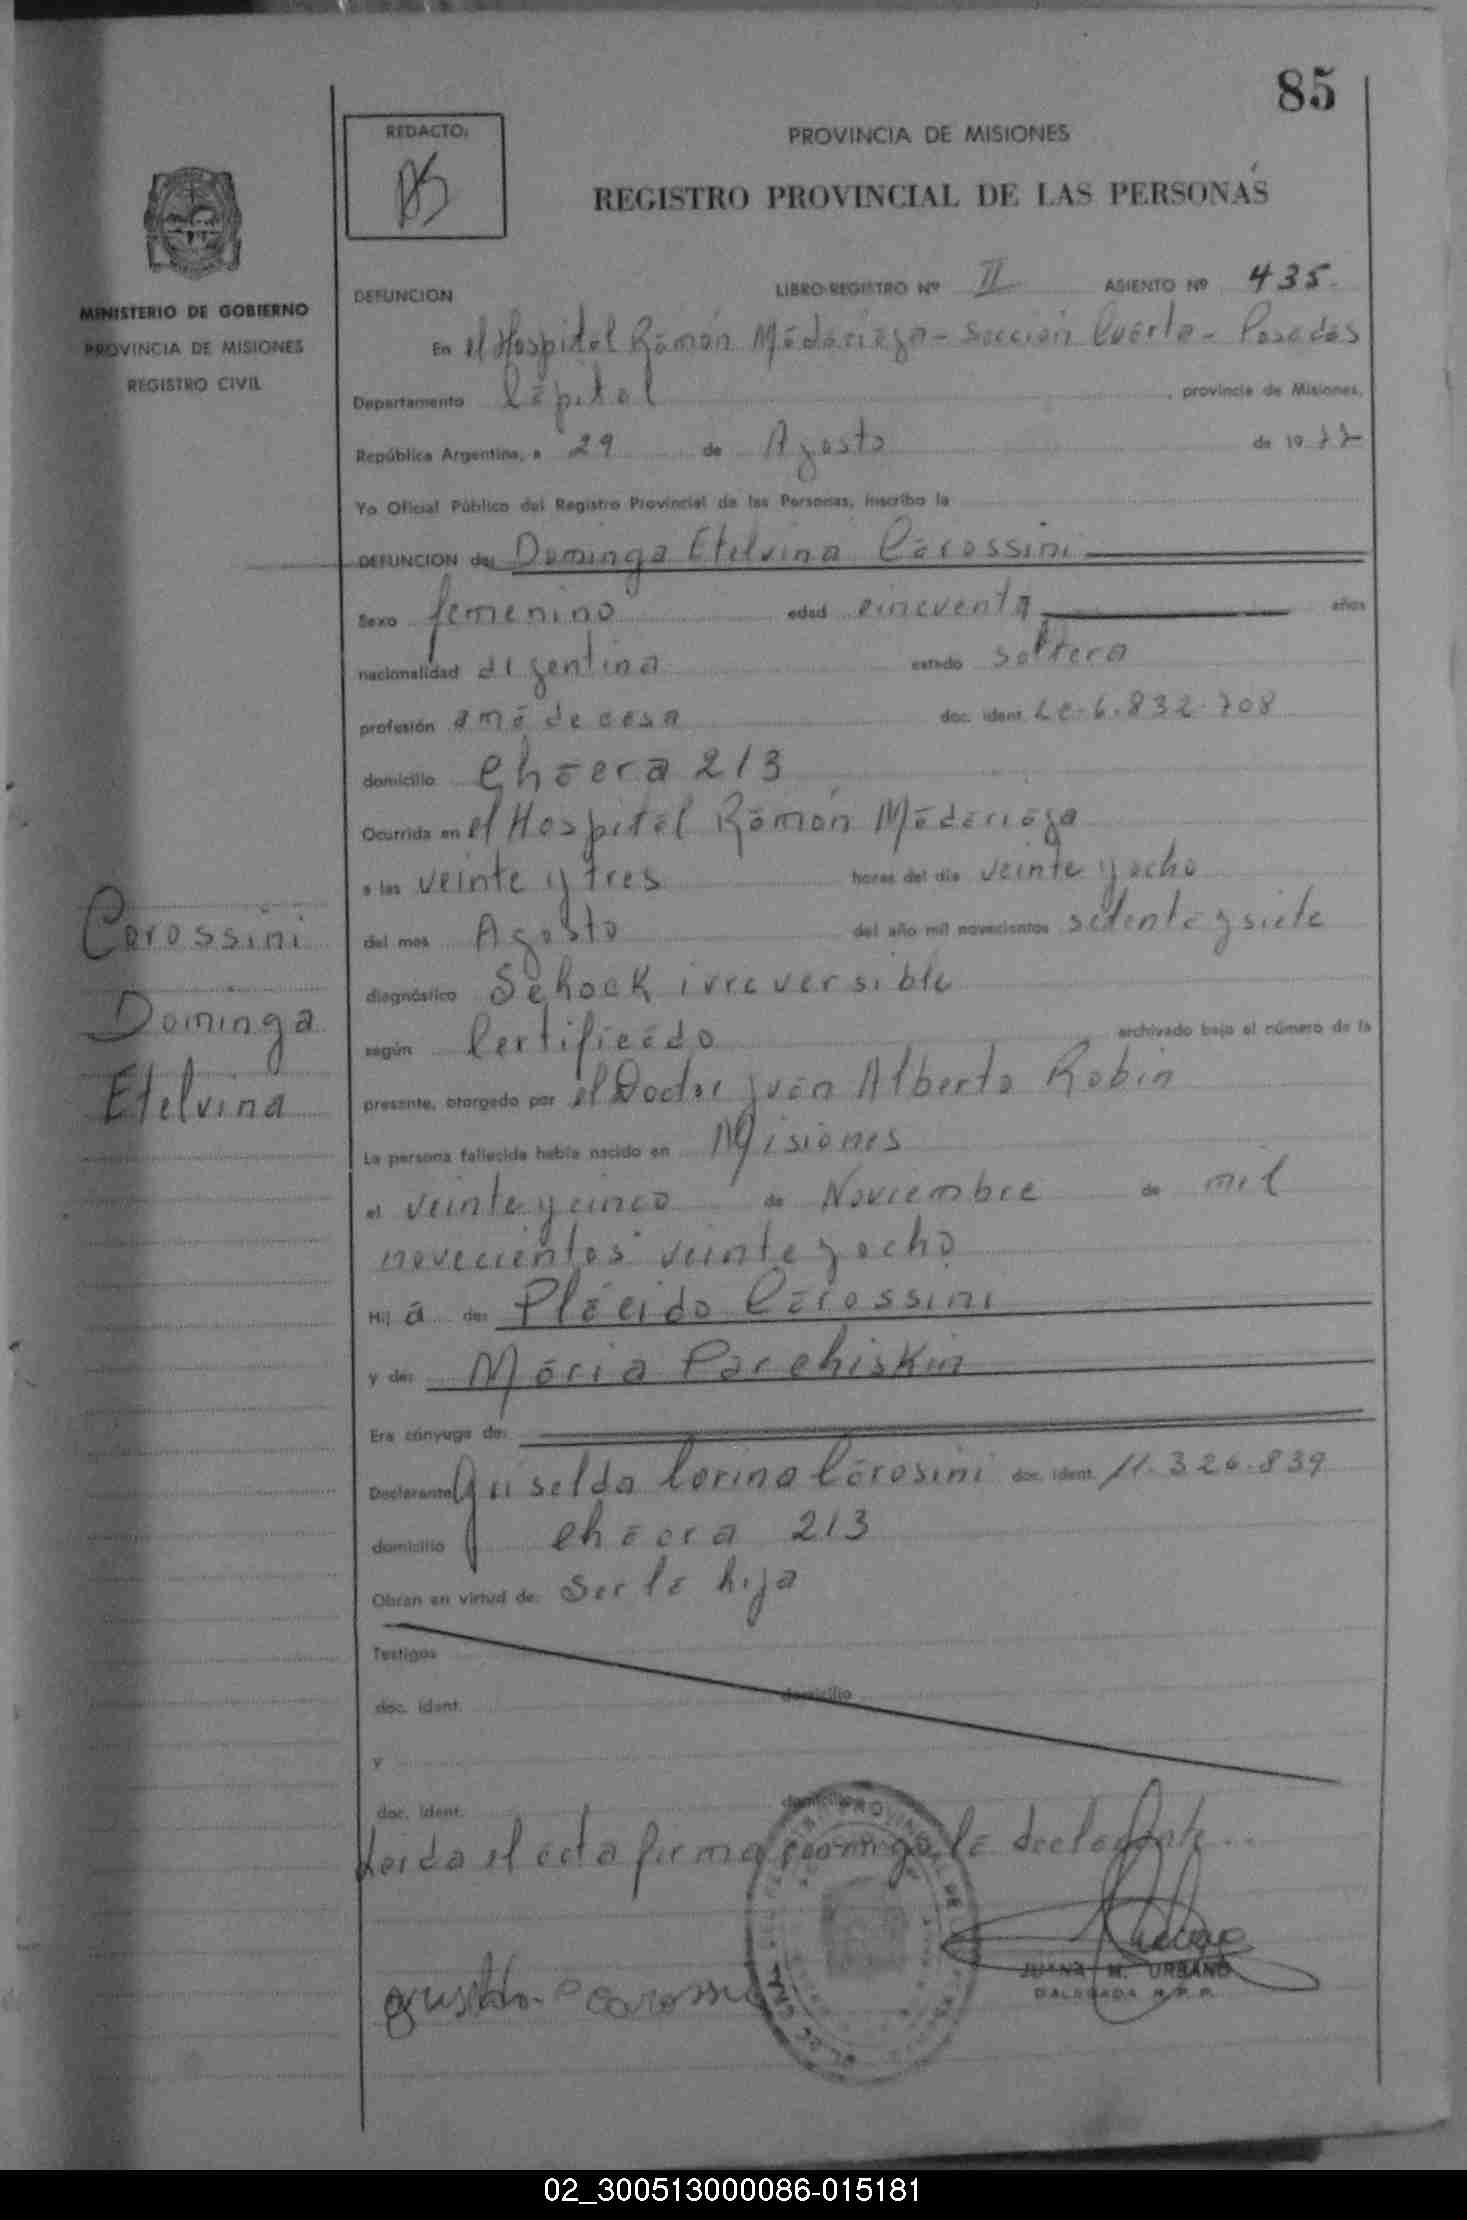 85
REDACTO:
PROVINCIA DE MISIONES
REGISTRO PROVINCIAL DE LAS PERSONAS
MINISTERIO DE GOBIERNO
PROVINCIA DE MISIONES
REGISTRO CIVIL
DEFUNCION LIBRO-REGISTRO Nº II ASIENTO Nº 435.
En el Hospital Ramón Madariaga - Sección Cuarta - Posadas
Departamento Capital, provincia de Misiones,
República Argentina, a 29 de Agosto de 1977
Yo Oficial Público del Registro Provincial de las Personas, inscribo la
DEFUNCION de: Dominga Etelvina Carossini
Sexo femenino edad cincuenta años
nacionalidad argentina estado soltera
profesión ama de casa doc. ident. LC-6.832.708
domicilio Chacra 213
Ocurrida en el Hospital Ramón Madariaga
a las veinte y tres horas del día veinte y ocho
del mes Agosto del año mil novecientos setenta y siete
diagnóstico Schock irreversible
según Certificado archivado bajo el número de la
presente, otorgado por el Doctor Juan Alberto Robin
La persona fallecida había nacido en Misiones
el veinte y cinco de Noviembre de mil
novecientos veinte y ocho
Hij a de: Plácido Carossini
y de: María Parchiskin
Era cónyuge de:
Declarante Griselda Corina Carosini doc. ident. 11.326.839
domicilio Chacra 213
Obran en virtud de: Ser la hija
Testigos
doc. ident. domicilio
y
doc. ident. domicilio
Leida el acta firma conmigo la declarante..
Carossini
Dominga
Etelvina
JUANA M. URBANO
DALEGADA R.P.P.
02_300513000086-015181